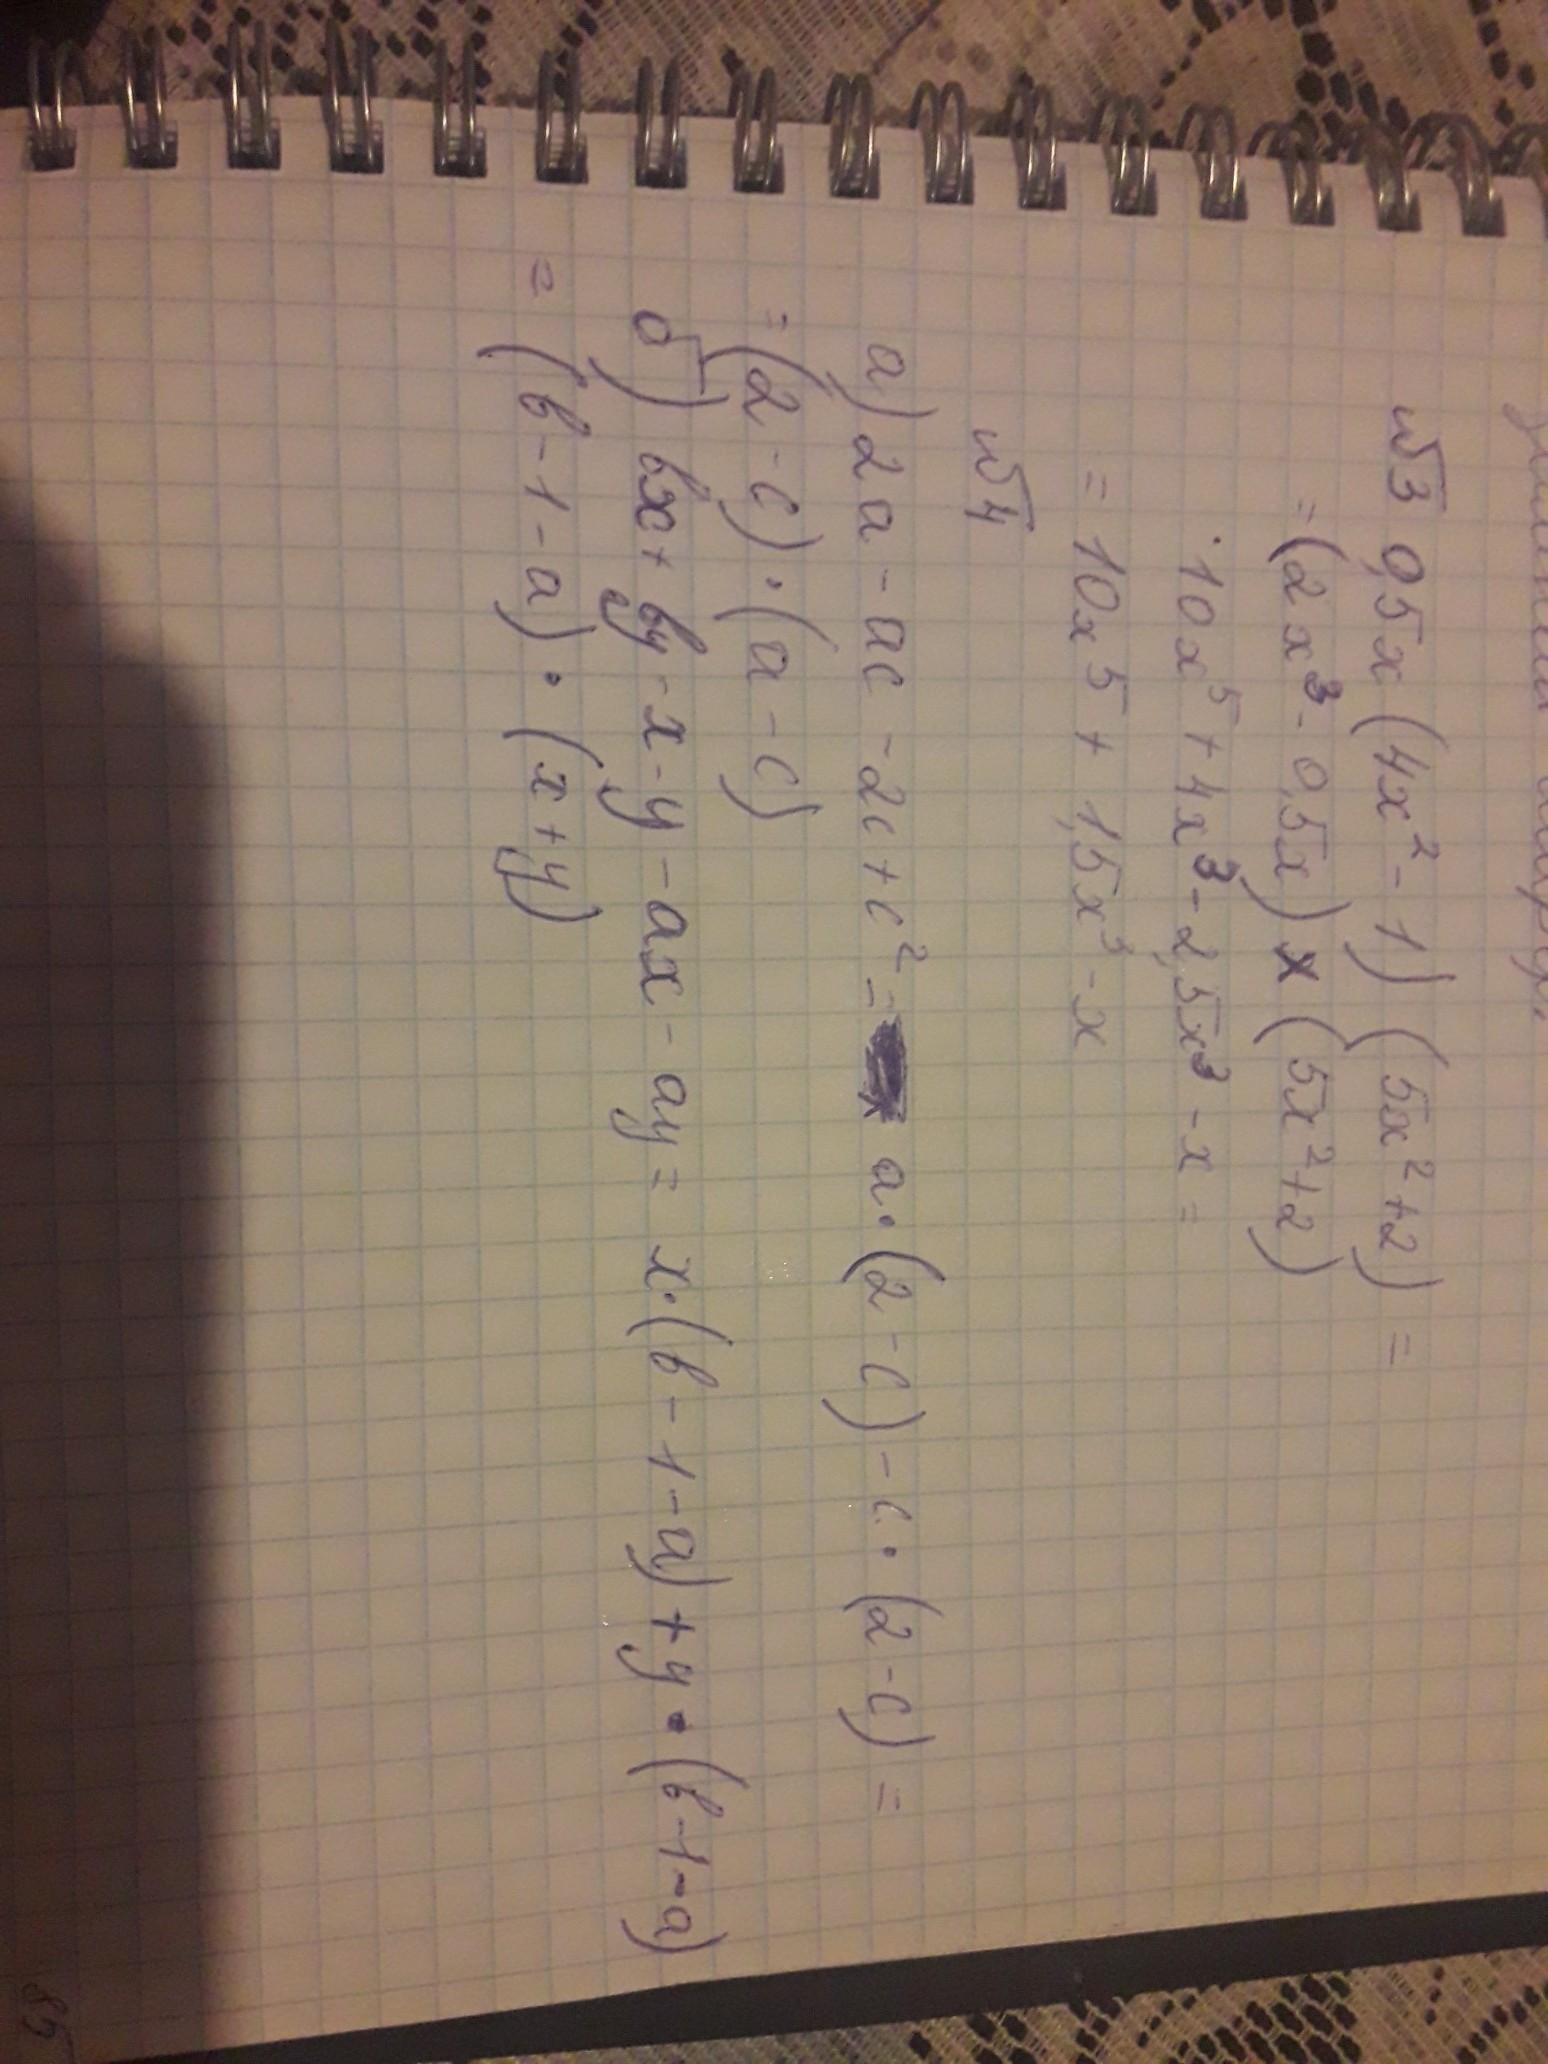 №3 0,5x(4x²-1)(5x²+2)=
=(2x³-0,5x)×(5x²+2)
·10x⁵+4x³-2,5x³-x=
=10x⁵+1,5x³-x
№4
а) 2a-ac-2c+c²= a·(2-c)-c·(2-c)=
=(2-c)·(a-c)
б) bx+by-x-y-ax-ay= x·(b-1-a)+y·(b-1-a)
=(b-1-a)·(x+y)
85